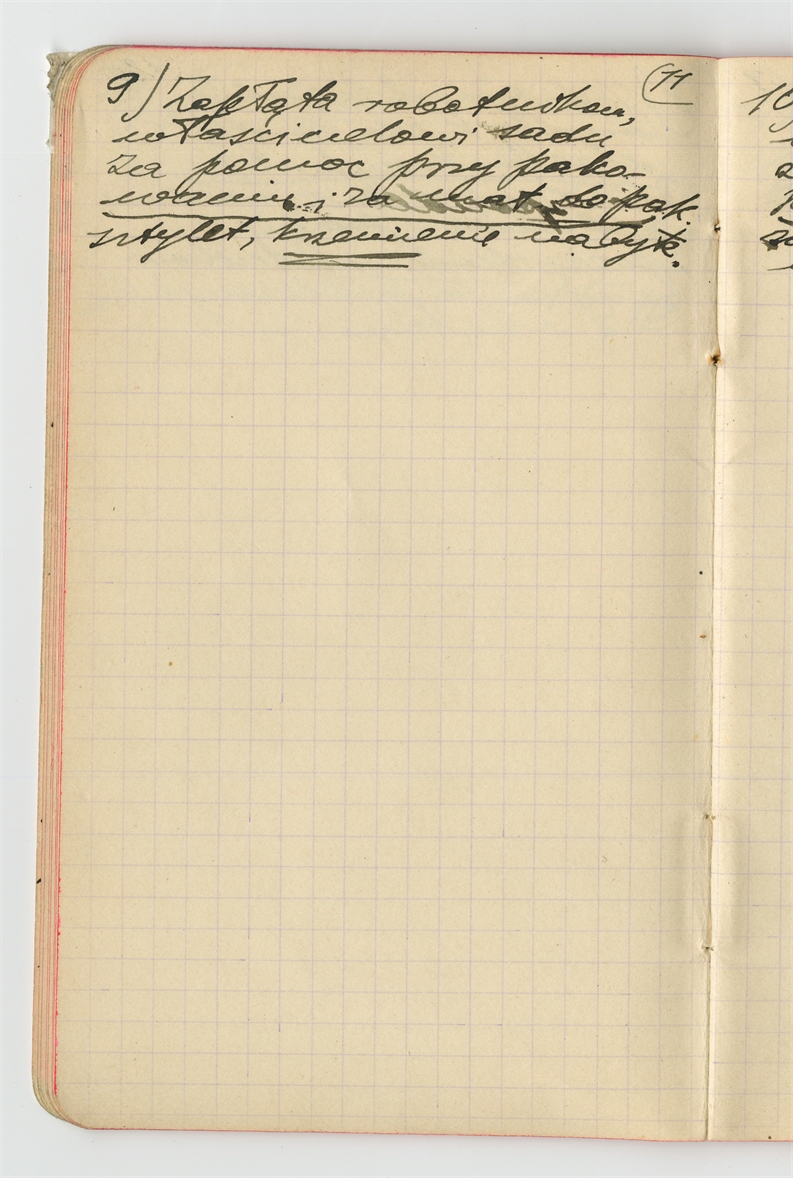 11
9) Zapłata robotnikom,
właścicielowi sadu
za pomoc przy pako-
waniu i za mat. do pak.
sztylet, krzemienie nabyte.
10